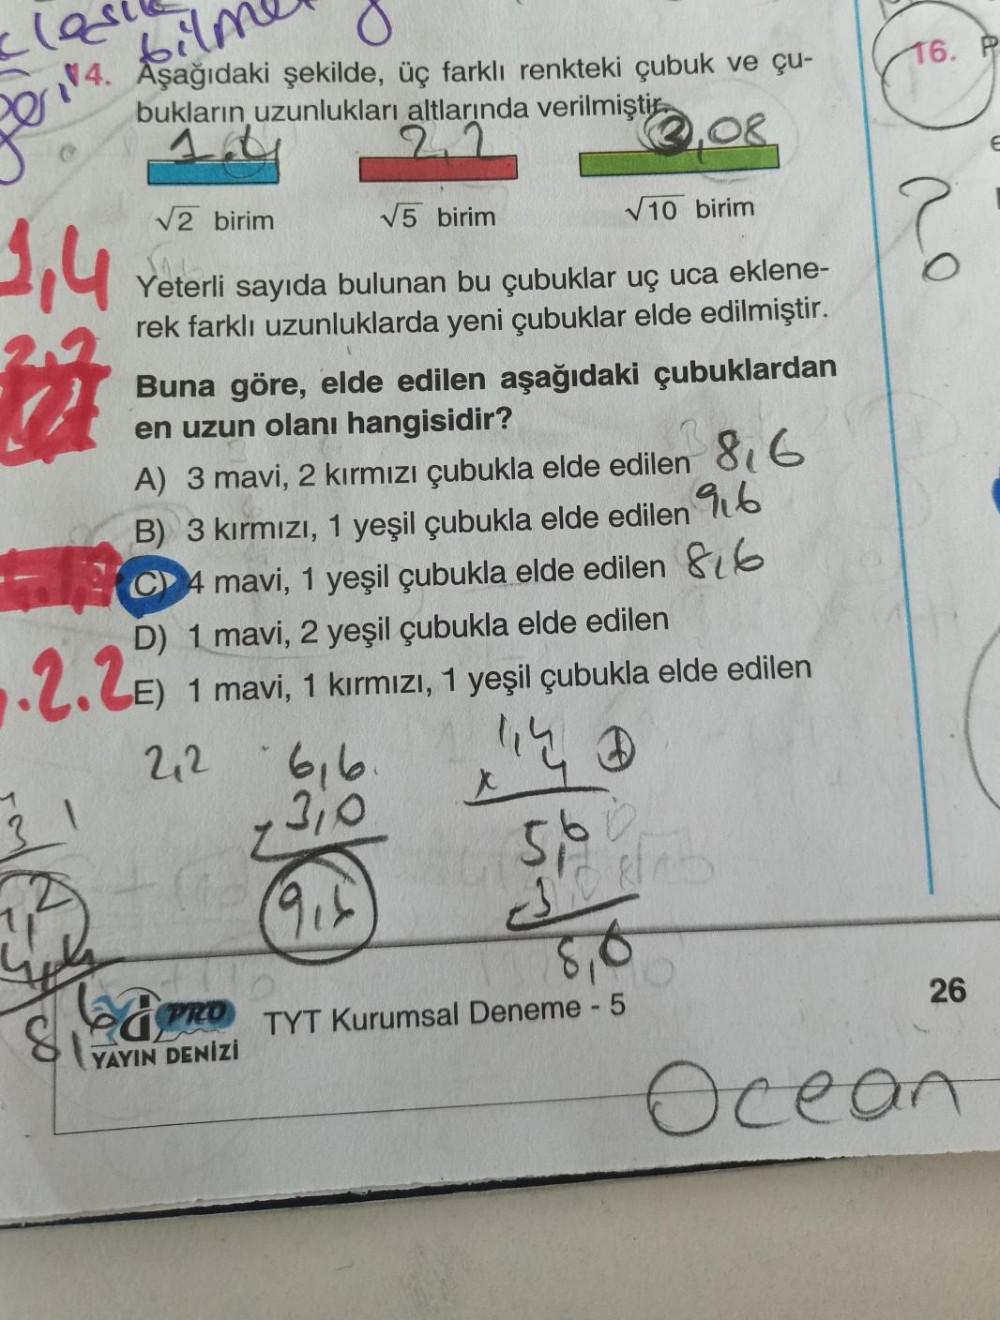 bilme
14. Aşağıdaki şekilde, üç farklı renkteki çubuk ve çu-
bukların uzunlukları altlarında verilmiştir.
1.4 2,2 3,08
√2 birim √5 birim √10 birim
1,4
Yeterli sayıda bulunan bu çubuklar uç uca eklene-
rek farklı uzunluklarda yeni çubuklar elde edilmiştir.
2,2
Buna göre, elde edilen aşağıdaki çubuklardan
en uzun olanı hangisidir?
A) 3 mavi, 2 kırmızı çubukla elde edilen 8,6
B) 3 kırmızı, 1 yeşil çubukla elde edilen 9,6
C) 4 mavi, 1 yeşil çubukla elde edilen 8,6
D) 1 mavi, 2 yeşil çubukla elde edilen
2.2
E) 1 mavi, 1 kırmızı, 1 yeşil çubukla elde edilen
2,2 6,6 1,4
3,0 x 4
3 5,6
9,6 3,08
4,4 8,6
8,6
PRO
YAYIN DENİZİ
TYT Kurumsal Deneme - 5
26
Ocean
16.
?